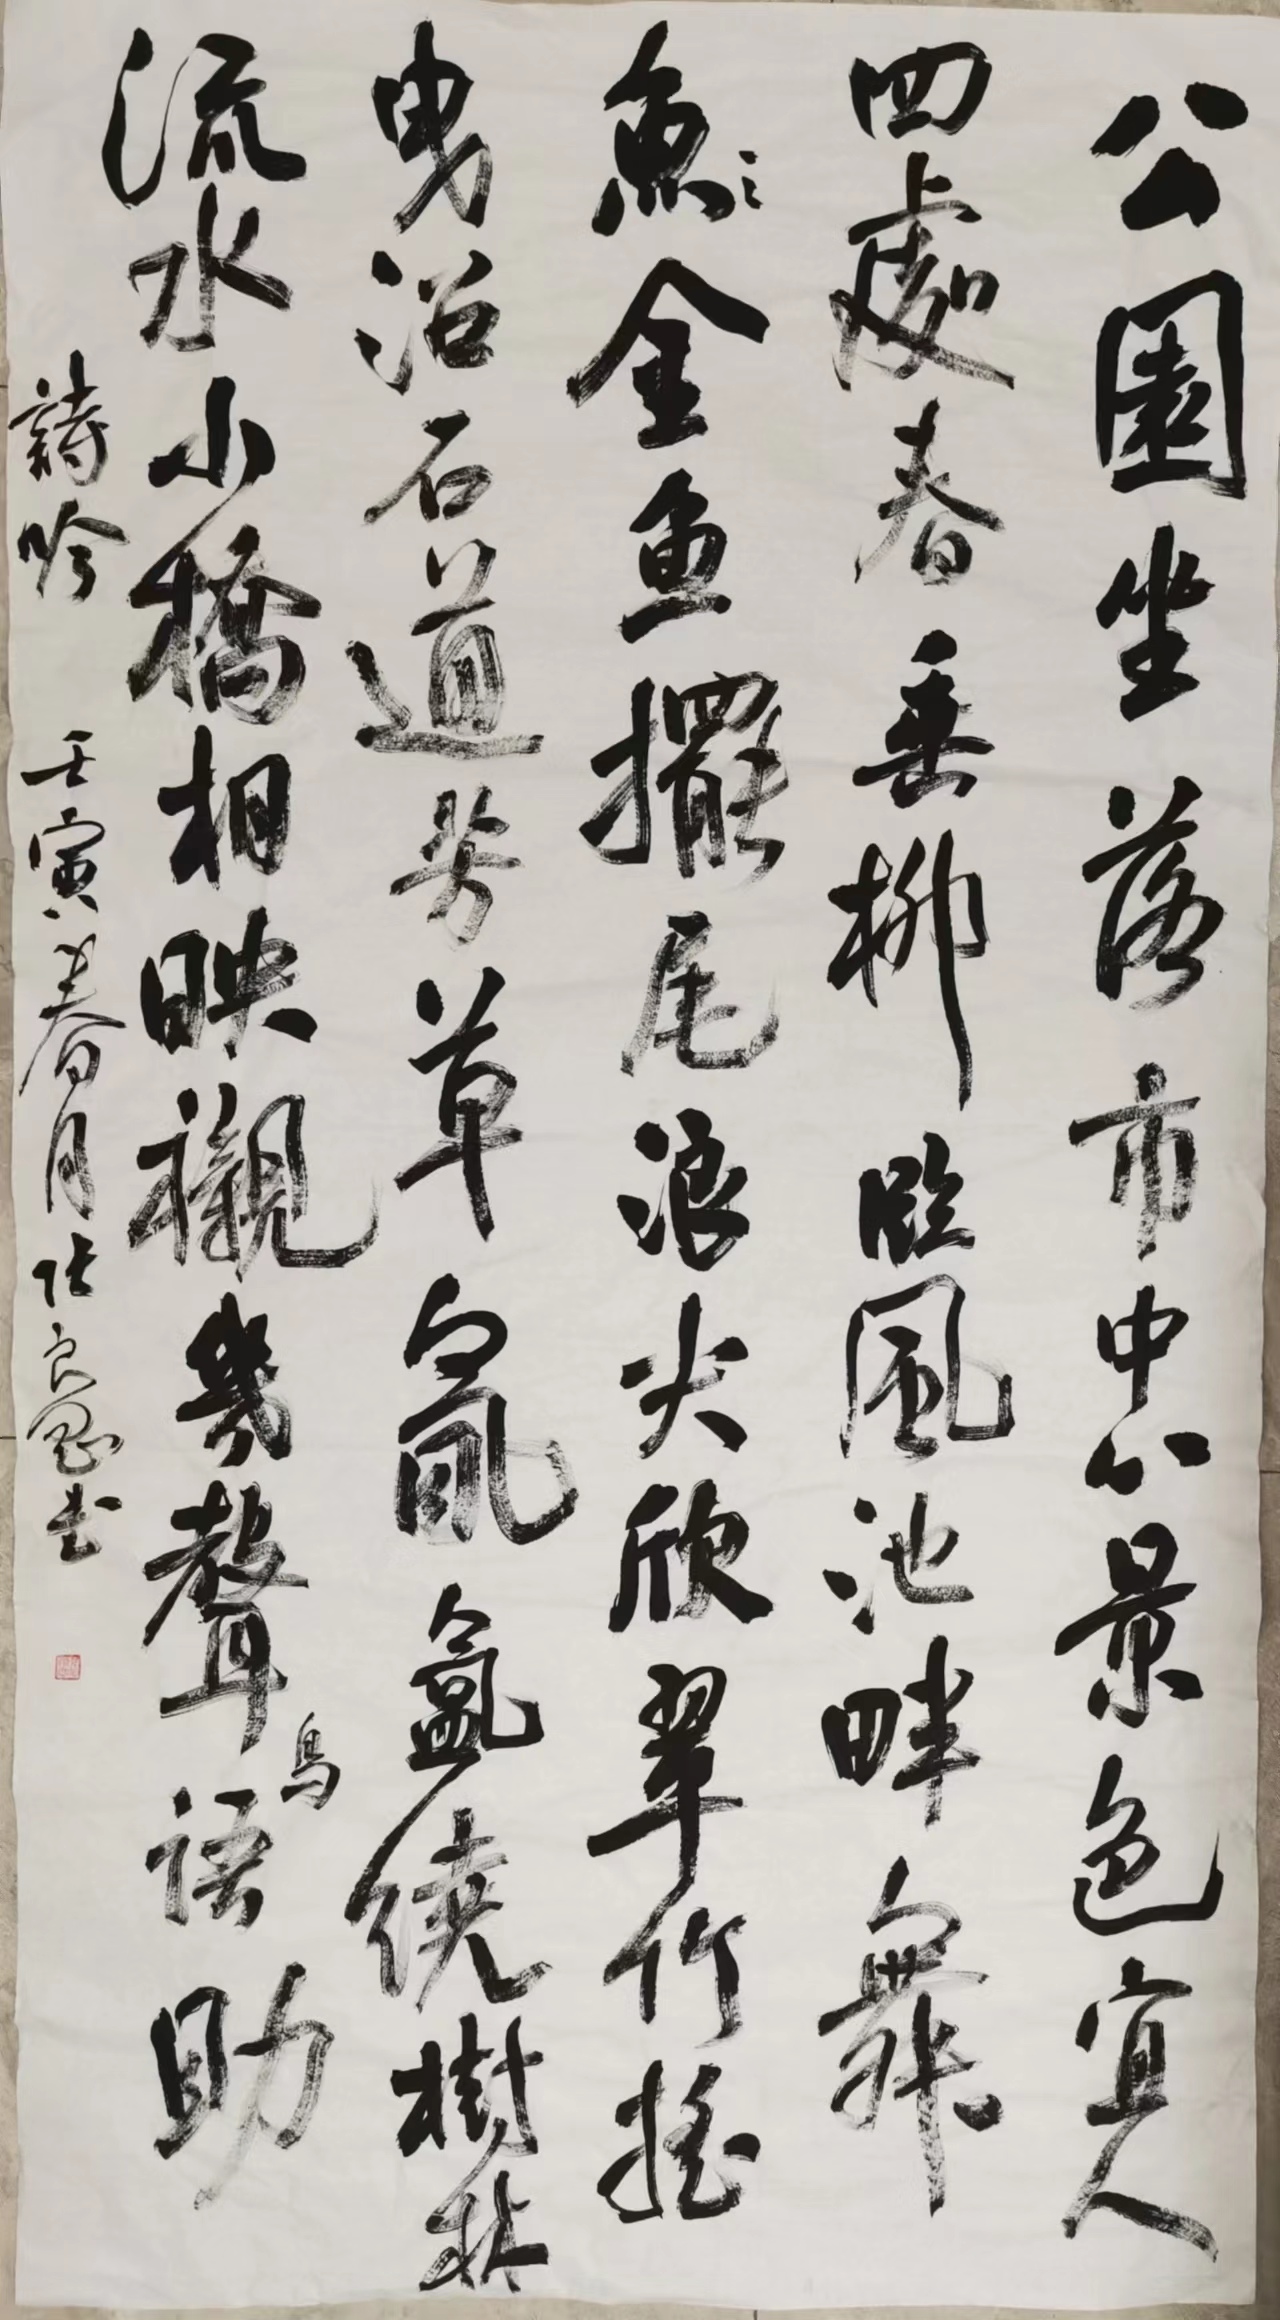 公園坐落市中心景色宜人
四處春垂柳臨風池畔舞
魚〻金魚擺尾浪尖欣翠竹搖
曳沿石道芳草氤氳繞樹林
流水小橋相映襯幾聲鳥語助
詩吟 壬寅春月 张良 书